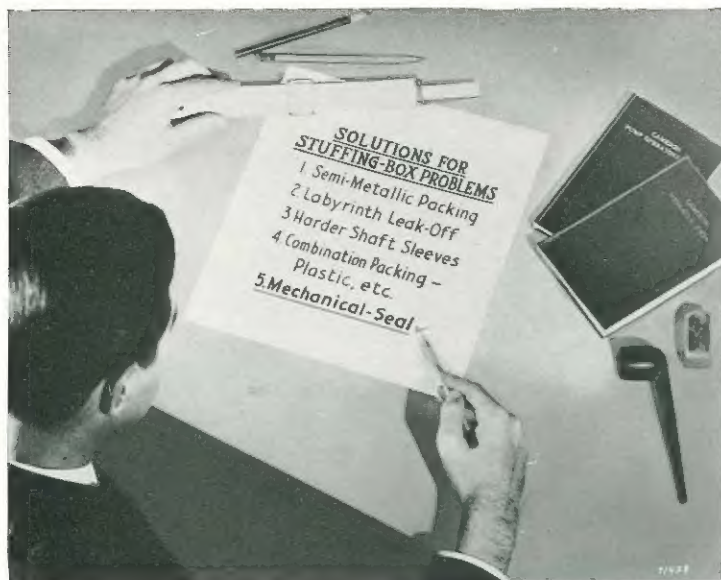 SOLUTIONS FOR
STUFFING-BOX PROBLEMS
1. Semi-Metallic Packing
2. Labyrinth Leak-Off
3 Harder Shaft Sleeves
4. Combination Packing –
Plastic, etc.
5. Mechanical-Seal
CAMERON
PUMP OPERATORS